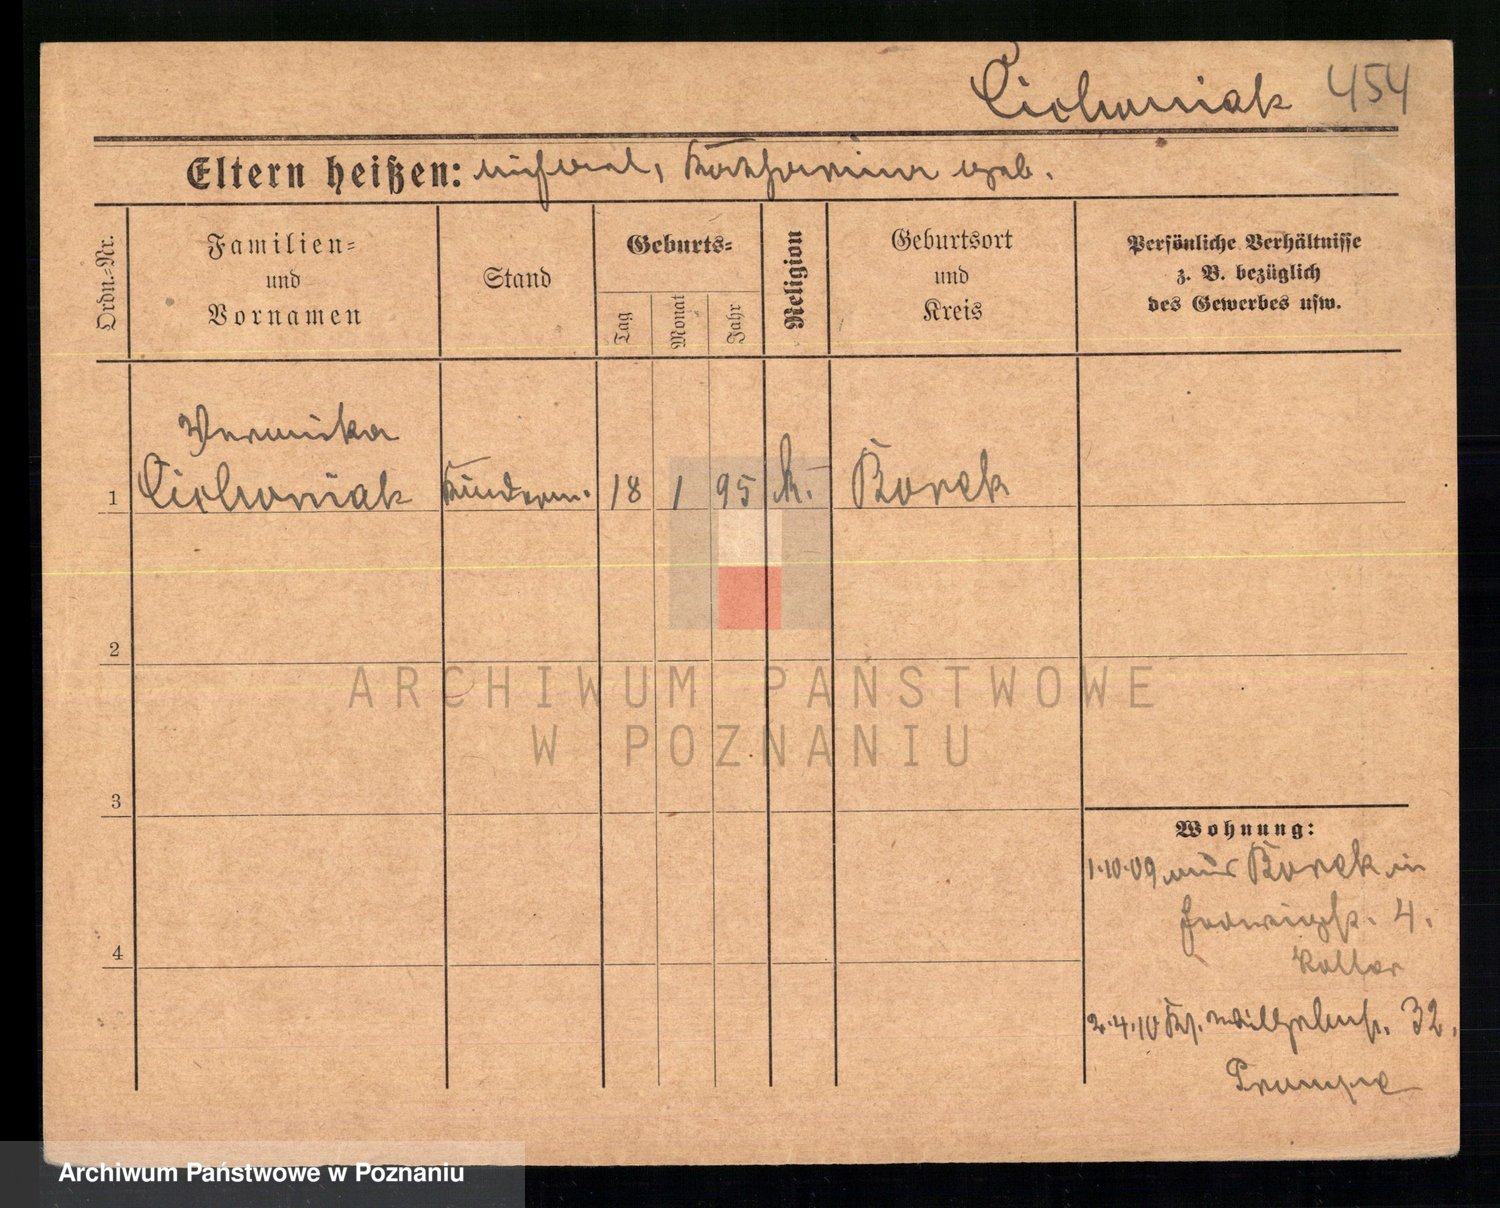 Cichoniak 454
Eltern heißen: Michael, Katharina geb.
Ordn.-Nr.
Familien- und Vornamen
Stand
Geburts-
Tag
Monat
Jahr
Religion
Geburtsort und Kreis
Persönliche Verhältnisse
z. B. bezüglich
des Gewerbes usw.
Veronika
1 Cichoniak Kinderm. 18 1 95 k. Borek
2
3
4
Wohnung:
1.10.09 aus Borek in
4.
2.4.10 Kl. Wilhelmst. 32.
ARCHIWUM PAŃSTWOWE
W POZNANIU
Archiwum Państwowe w Poznaniu